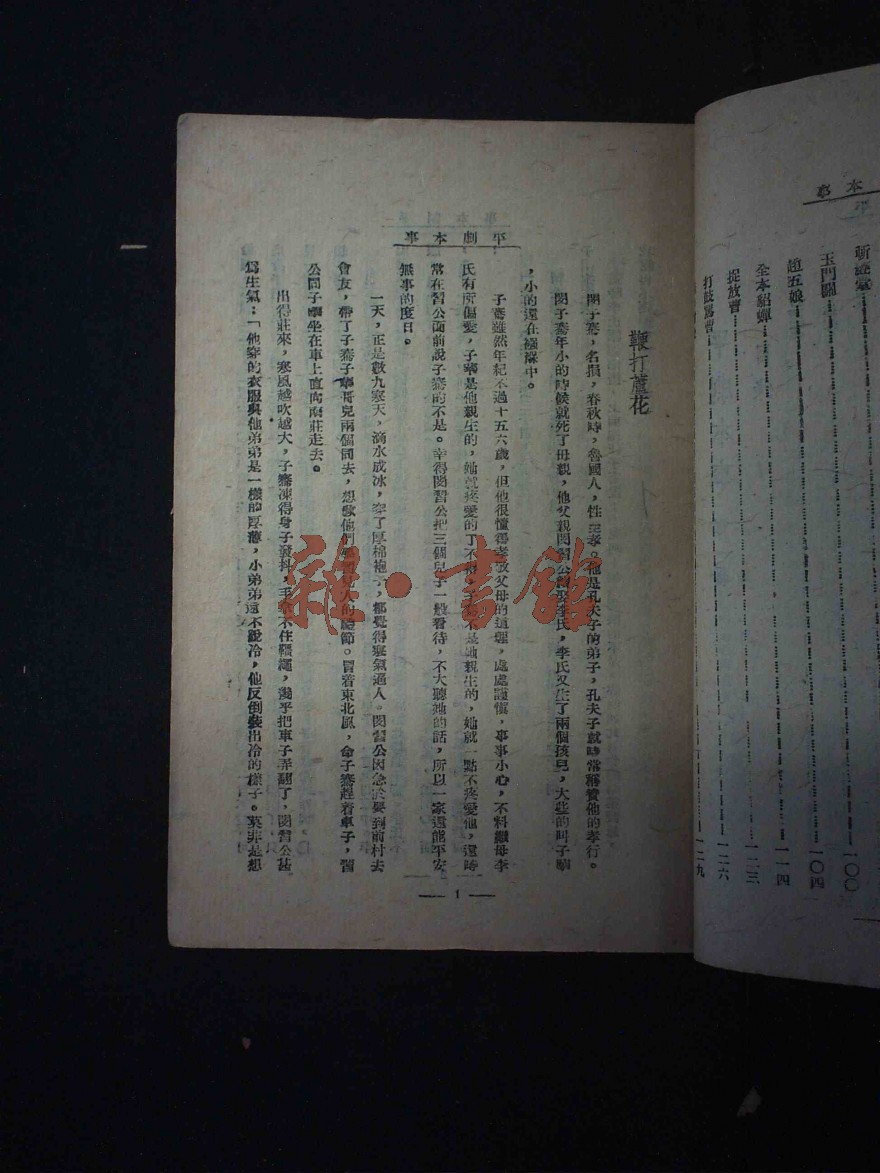 本事
斬經堂……一〇〇
玉門關……一〇四
趙五娘……一一四
全本貂蟬……一二三
捉放曹……一二六
打鼓罵曹……一二九
平劇本事
鞭打蘆花
閔子騫,名損,春秋時,魯國人,性至孝。他是孔夫子的弟子,孔夫子就時常稱賛他的孝行。
閔子騫年小的時候就死了母親,他父親閔習公續娶李氏,李氏又生了兩個孩兒,大些的叫子華
,小的還在襁褓中。
子騫雖然年紀不過十五六歲,但他很懂得孝敬父母的道理,處處謹慎,事事小心,不料繼母李
氏有所偏愛,子華是他親生的,她就疼愛的了不得,子騫不是她親生的,她就一點不疼愛他,還時
常在習公面前說子騫的不是。幸得閔習公把三個兒子一般看待,不大聽她的話,所以一家還能平安
無事的度日。
一天,正是數九寒天,滴水成冰,穿了厚棉袍子,都覺得寒氣逼人。閔習公因急於要到前村去
會友,帶了子騫子華哥兒兩個同去,想教他們學習見人的禮節。冒着東北風,命子騫趕着車子,習
公同子華坐在車上直向南莊走去。
出得莊來,寒風越吹越大,子騫凍得身子發抖,手拿不住韁繩,幾乎把車子弄翻了,閔習公甚
爲生氣:「他穿的衣服與他弟弟是一樣的厚薄,小弟弟還不說冷,他反倒裝出冷的樣子。莫非是想
— 1 —
雜·書館